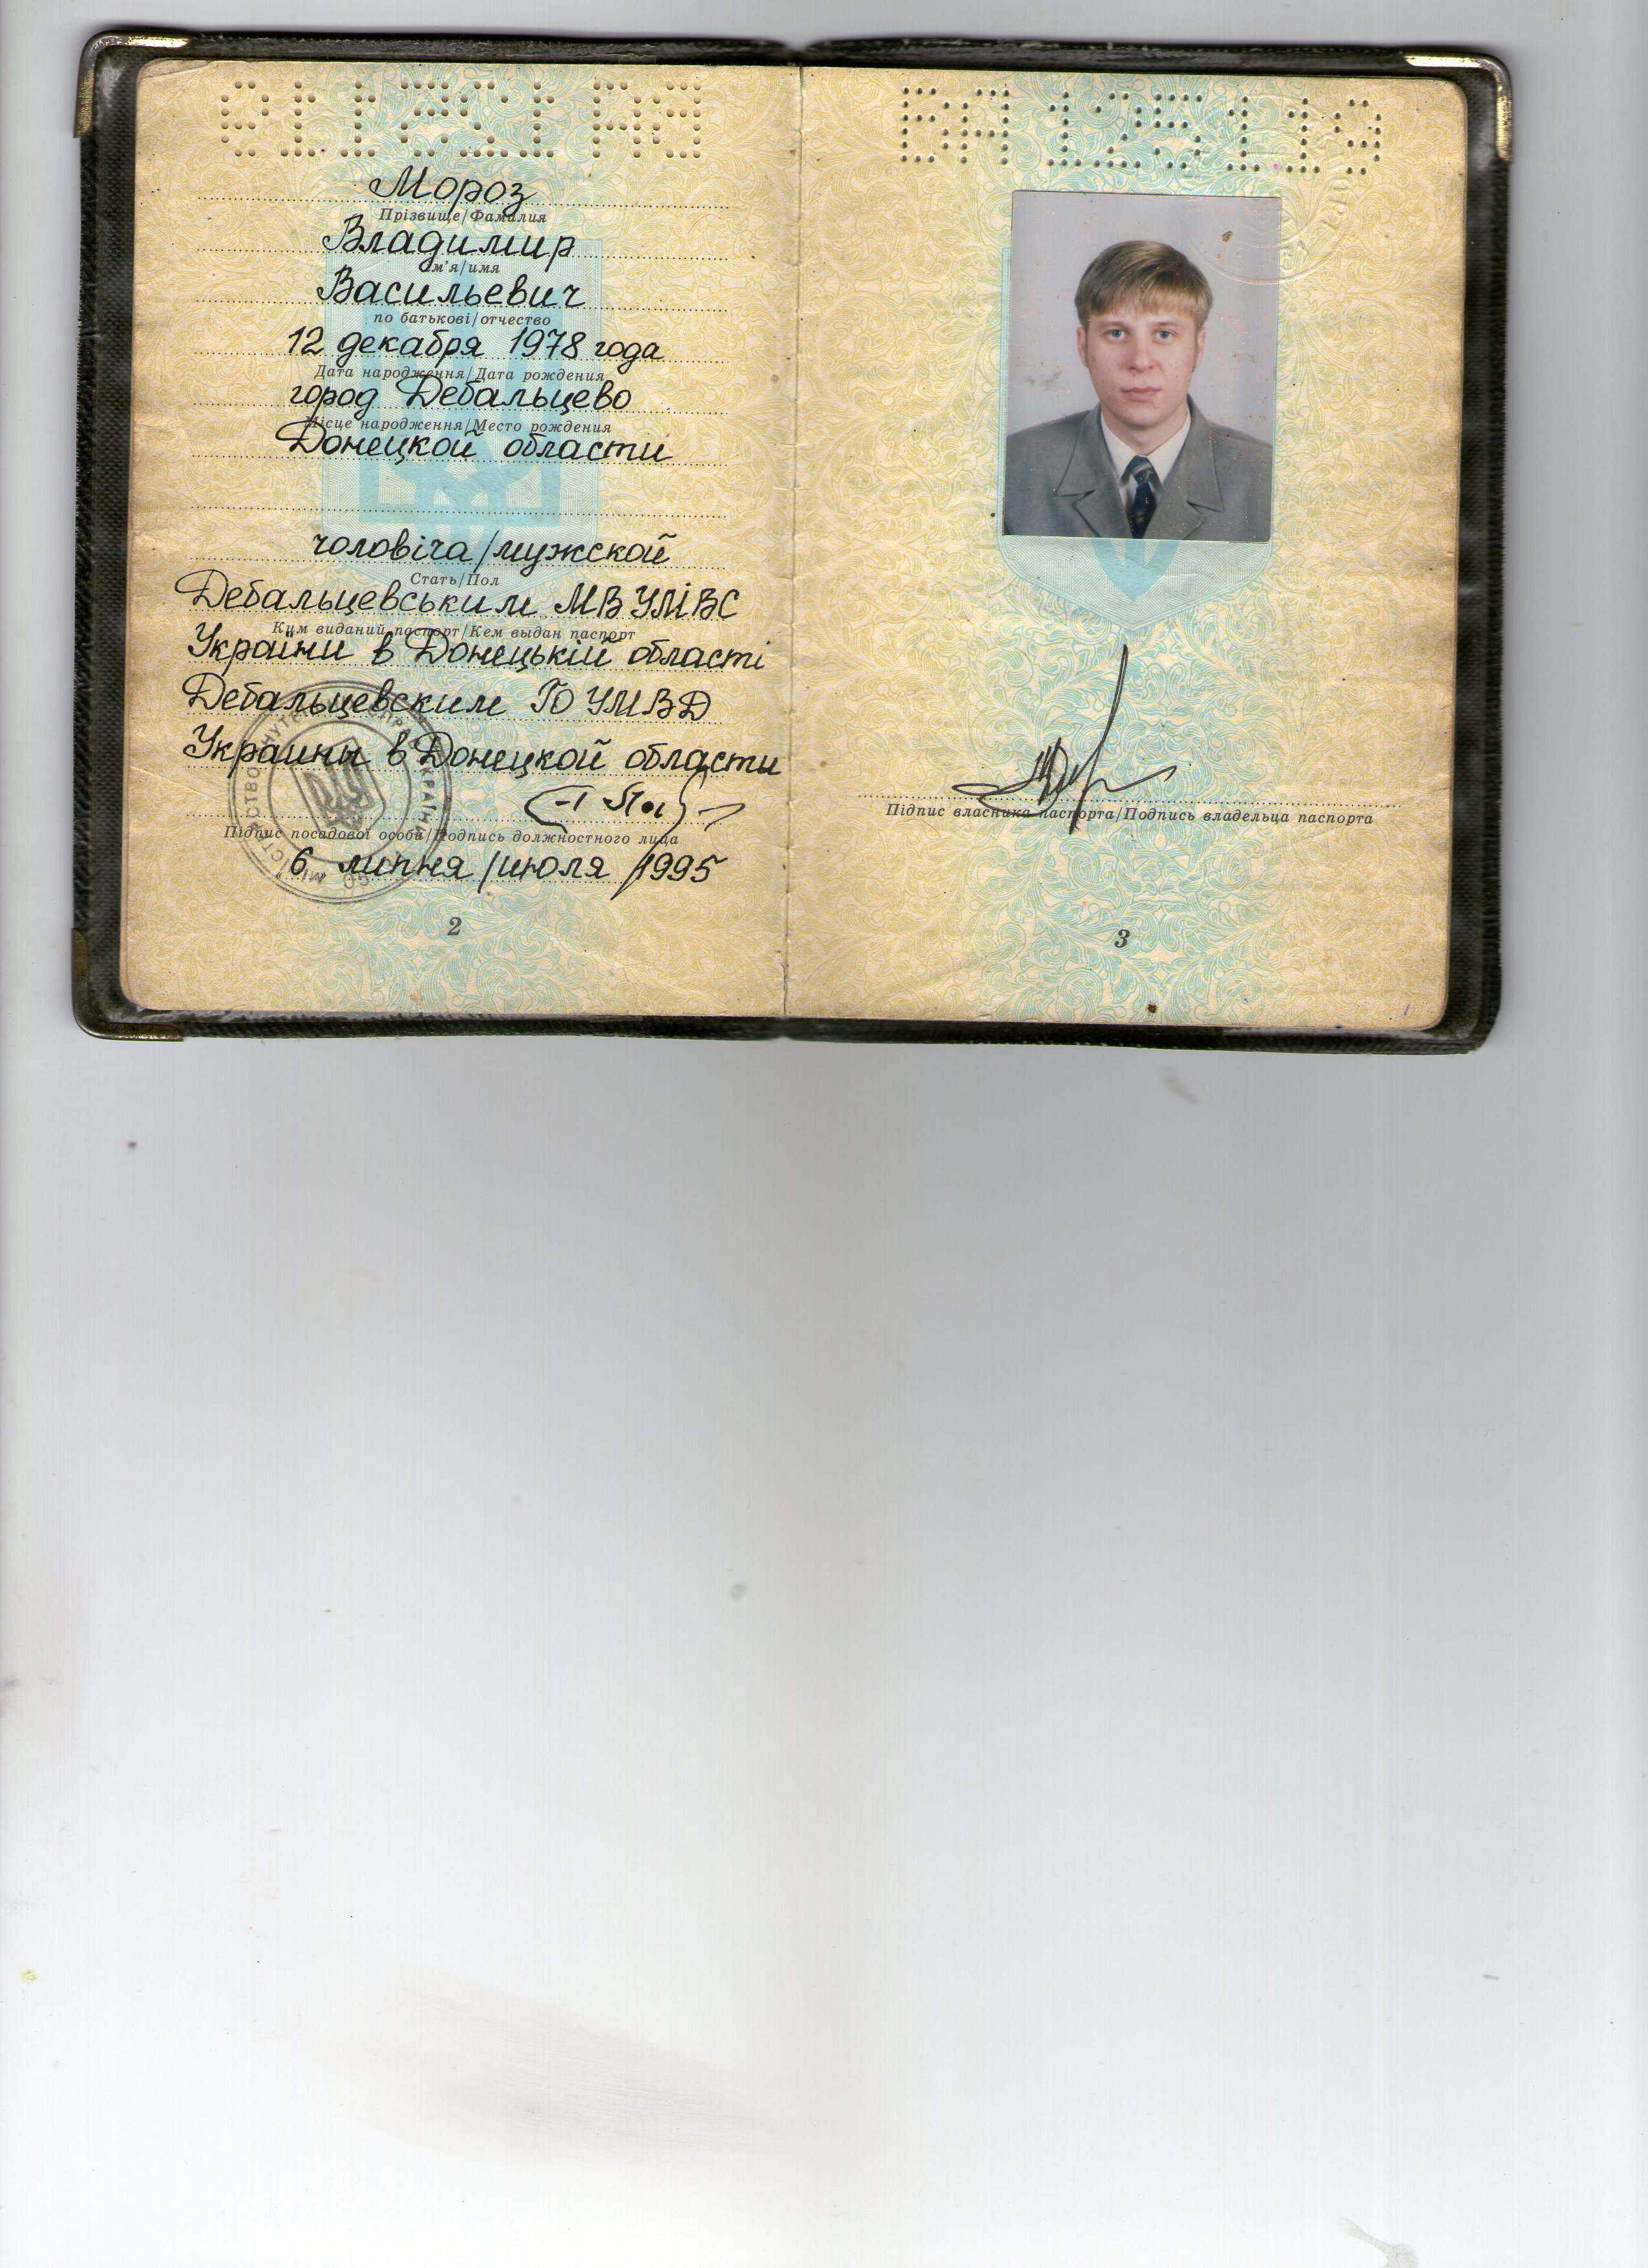 Мороз
Прізвище/Фамилия
Владимир
Ім'я/имя
Васильевич
по батькові/отчество
12 декабря 1978 года
Дата народження/Дата рождения
город Дебальцево
Місце народження/Место рождения
Донецкой области
чоловіча/мужской
Стать/Пол
Дебальцевським МВ УМВС
Ким виданий паспорт/Кем выдан паспорт
України в Донецькій області
Дебальцевским ГО УМВД
Украины в Донецкой области
Підпис посадової особи/Подпись должностного лица
6 липня/июля 1995
2
ВА 125119
Підпис власника паспорта/Подпись владельца паспорта
3